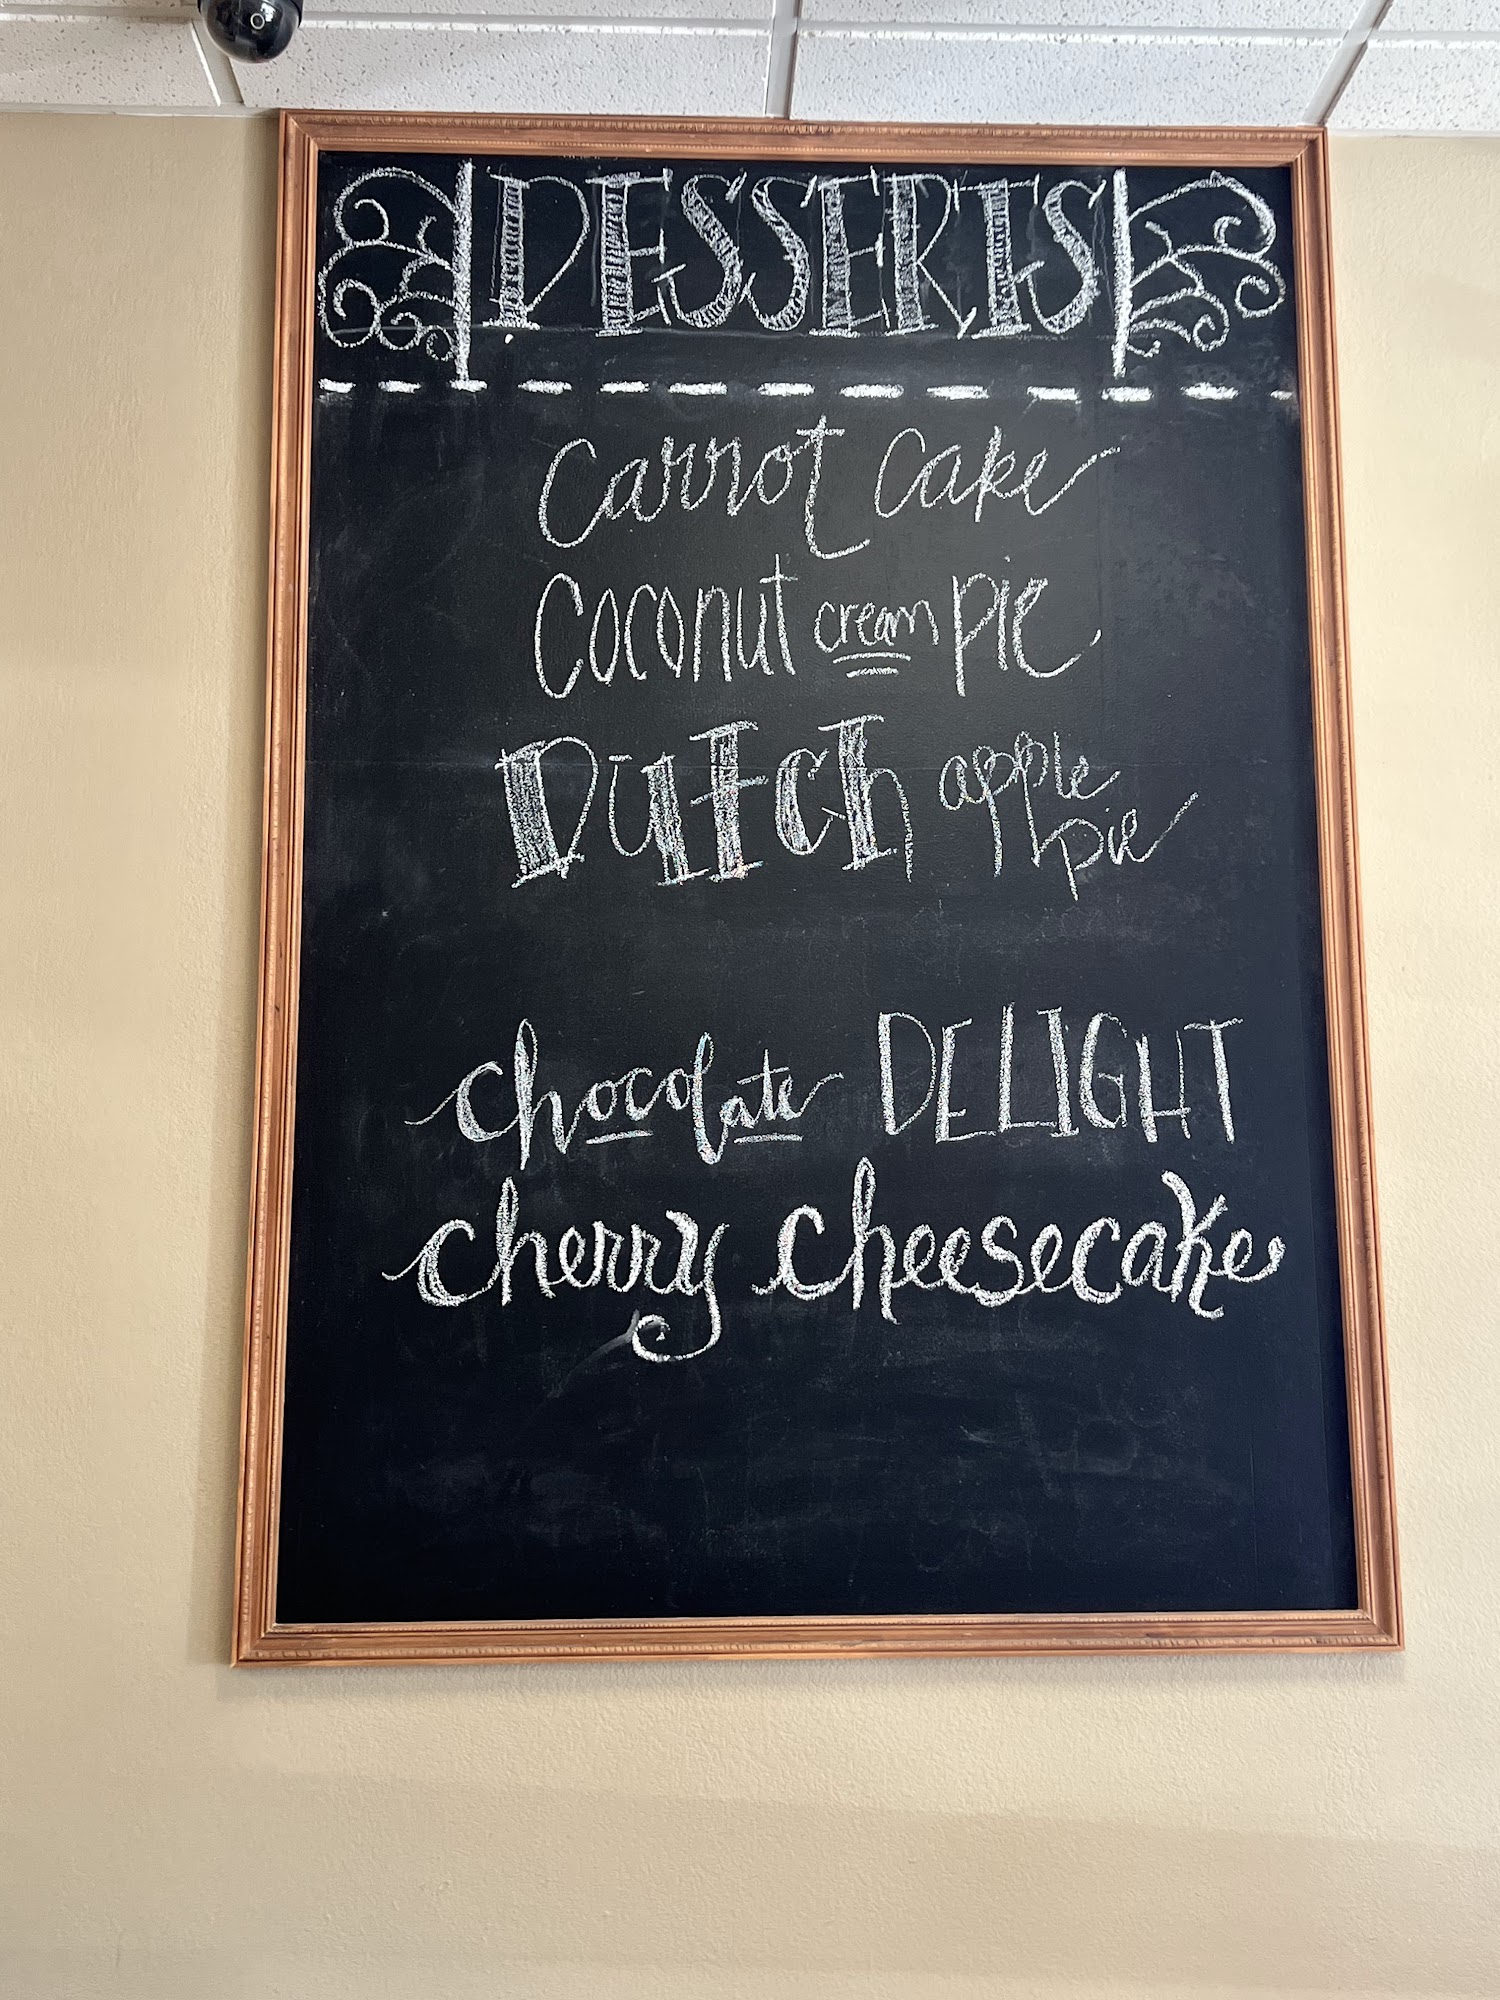 DESSERTS
Carrot Cake
Coconut cream Pie
DUTCh apple pie
chocolate DELIGHT
cherry cheesecake